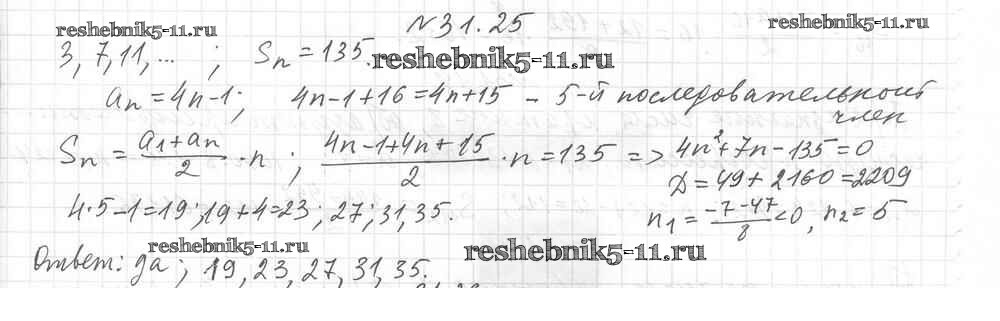 №31.25
reshebnik5-11.ru reshebnik5-11.ru
3, 7, 11, ... ; Sn = 135.
reshebnik5-11.ru
an = 4n-1; 4n-1+16 = 4n+15 – 5-й последовательной член
Sn = (a1+an)/2 · n ; (4n-1+4n+15)/2 · n = 135 => 4n²+7n-135=0
D = 49+2160 = 2209
4·5-1=19; 19+4=23; 27; 31, 35. n1 = (-7-47)/8 < 0, n2 = 5
reshebnik5-11.ru reshebnik5-11.ru
Ответ: да; 19, 23, 27, 31, 35.